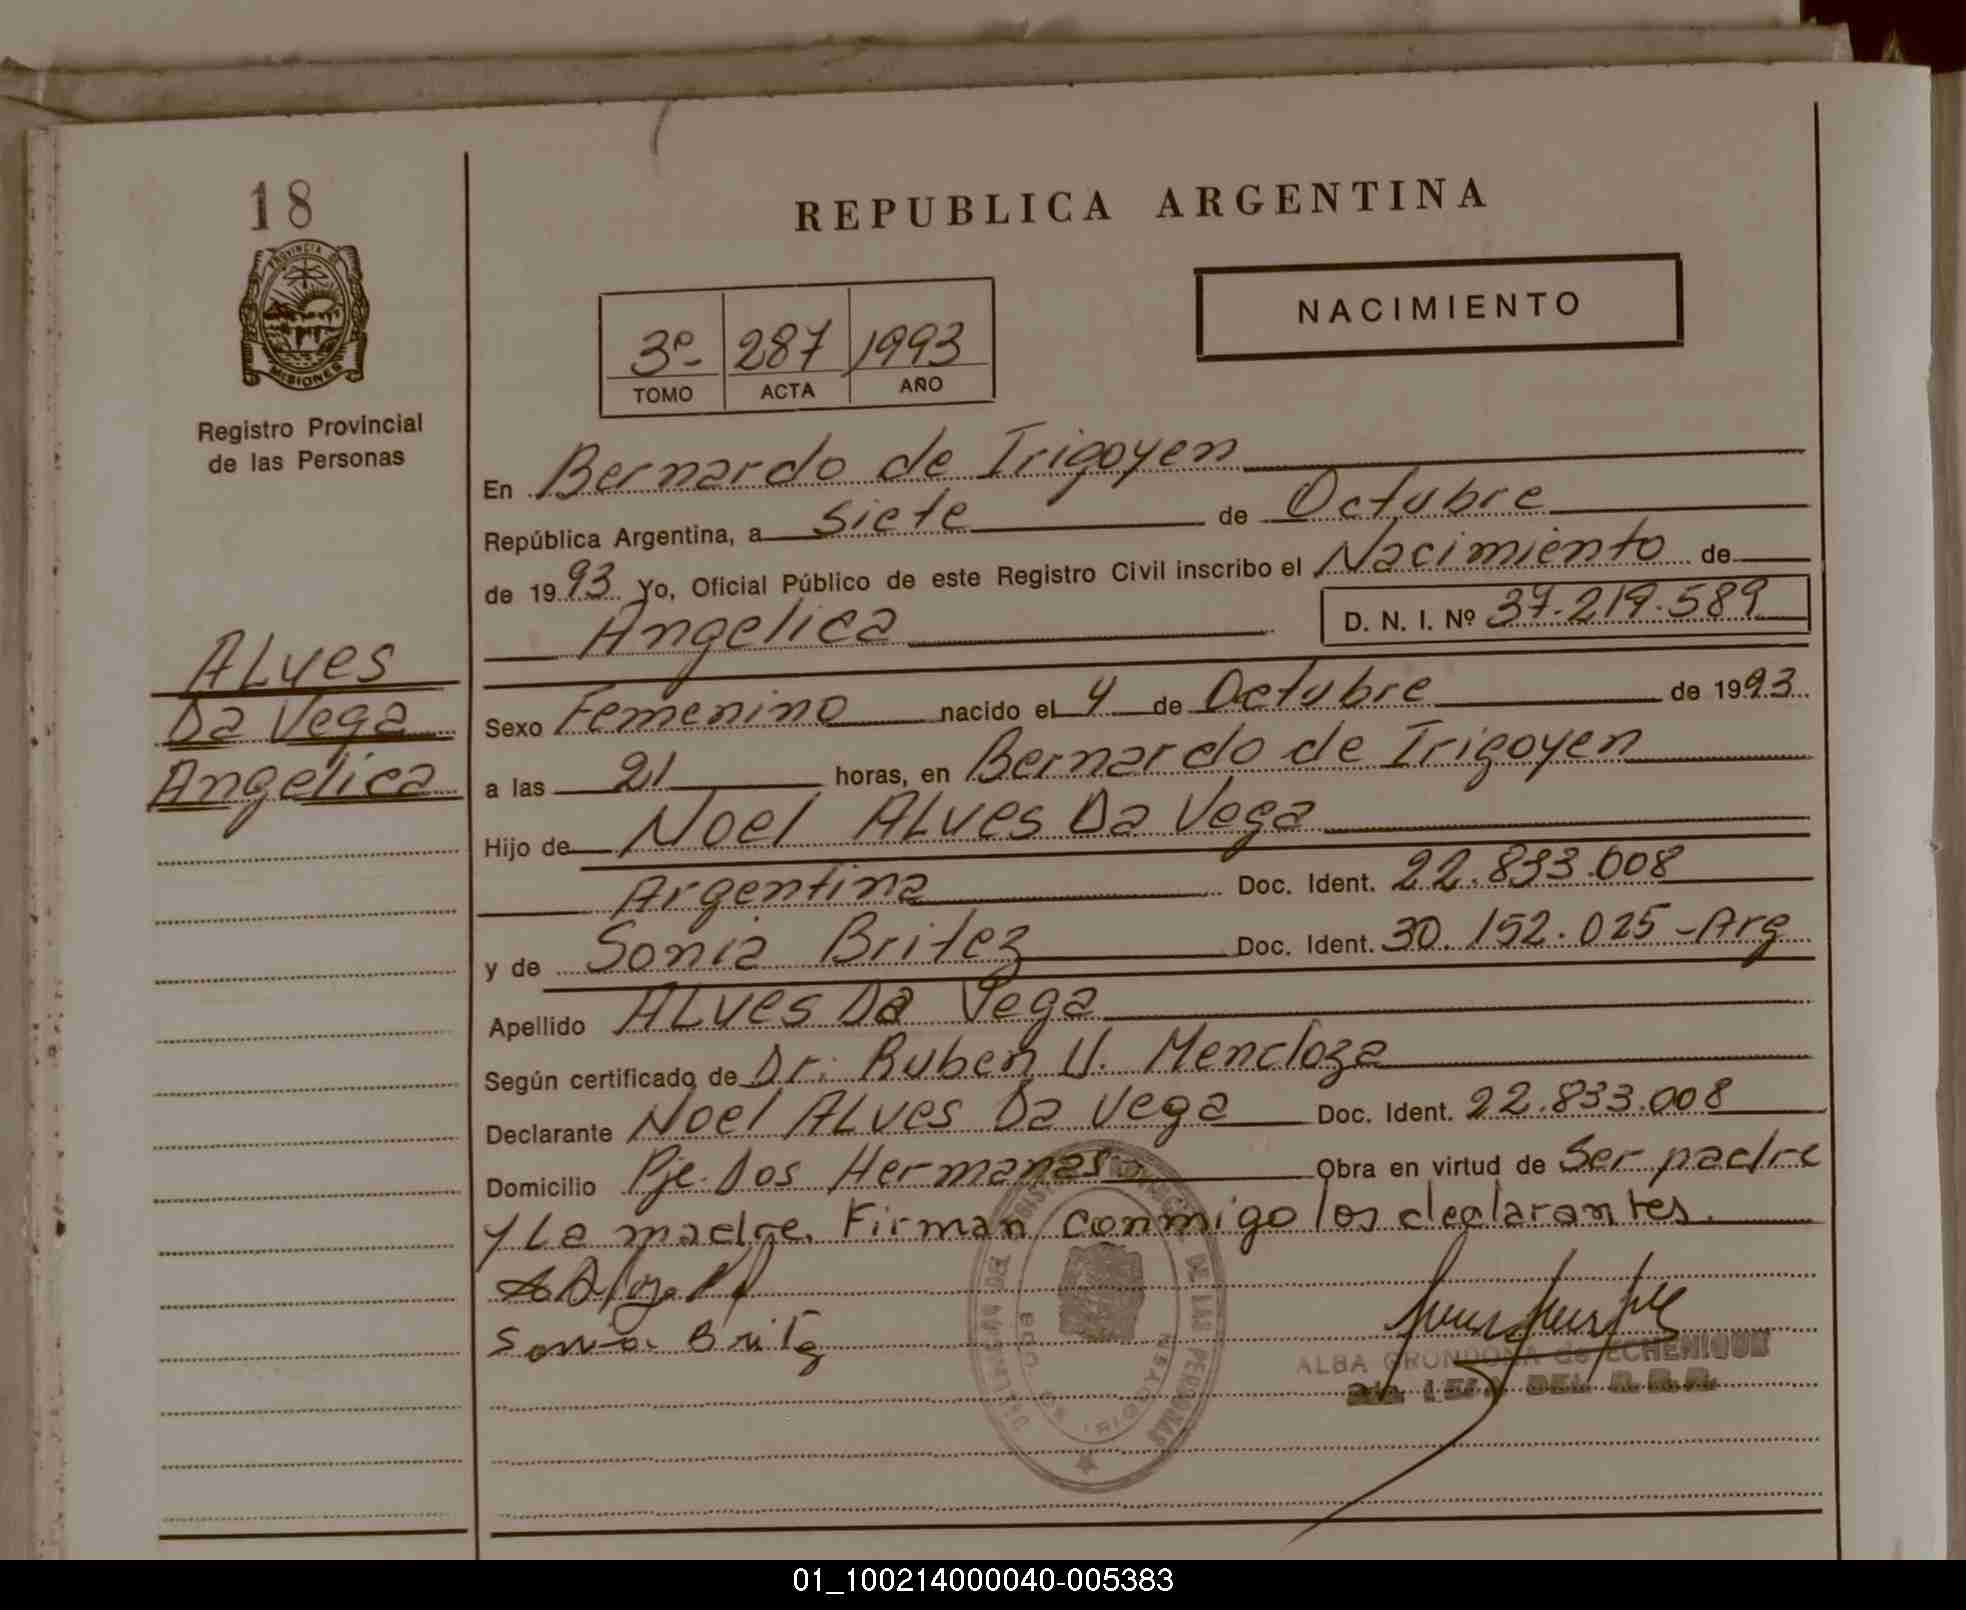 18
PROVINCIA DE
MISIONES
Registro Provincial
de las Personas
ALves
Da Vega
Angelica
REPUBLICA ARGENTINA
NACIMIENTO
3º- 287 1993
TOMO ACTA AÑO
En Bernardo de Irigoyen
República Argentina, a siete de Octubre
de 1993 Yo, Oficial Público de este Registro Civil inscribo el Nacimiento de
Angelica D. N. I. Nº 37.219.589
Sexo Femenino nacido el 4 de Octubre de 1993
a las 21 horas, en Bernardo de Irigoyen
Hijo de Noel ALves Da Vega
Argentina Doc. Ident. 22.833.008
y de Sonia Britez Doc. Ident. 30.152.025-Arg
Apellido ALves Da Vega
Según certificado de Dr. Ruben U. Mendoza
Declarante Noel ALves Da Vega Doc. Ident. 22.833.008
Domicilio Pje. Dos Hermanas Obra en virtud de Ser padre
y La madre. Firman conmigo los declarantes.
Sonia Britez
ALBA GRONDONA de ECHENIQUE
DE LAS PERSONAS
01_100214000040-005383